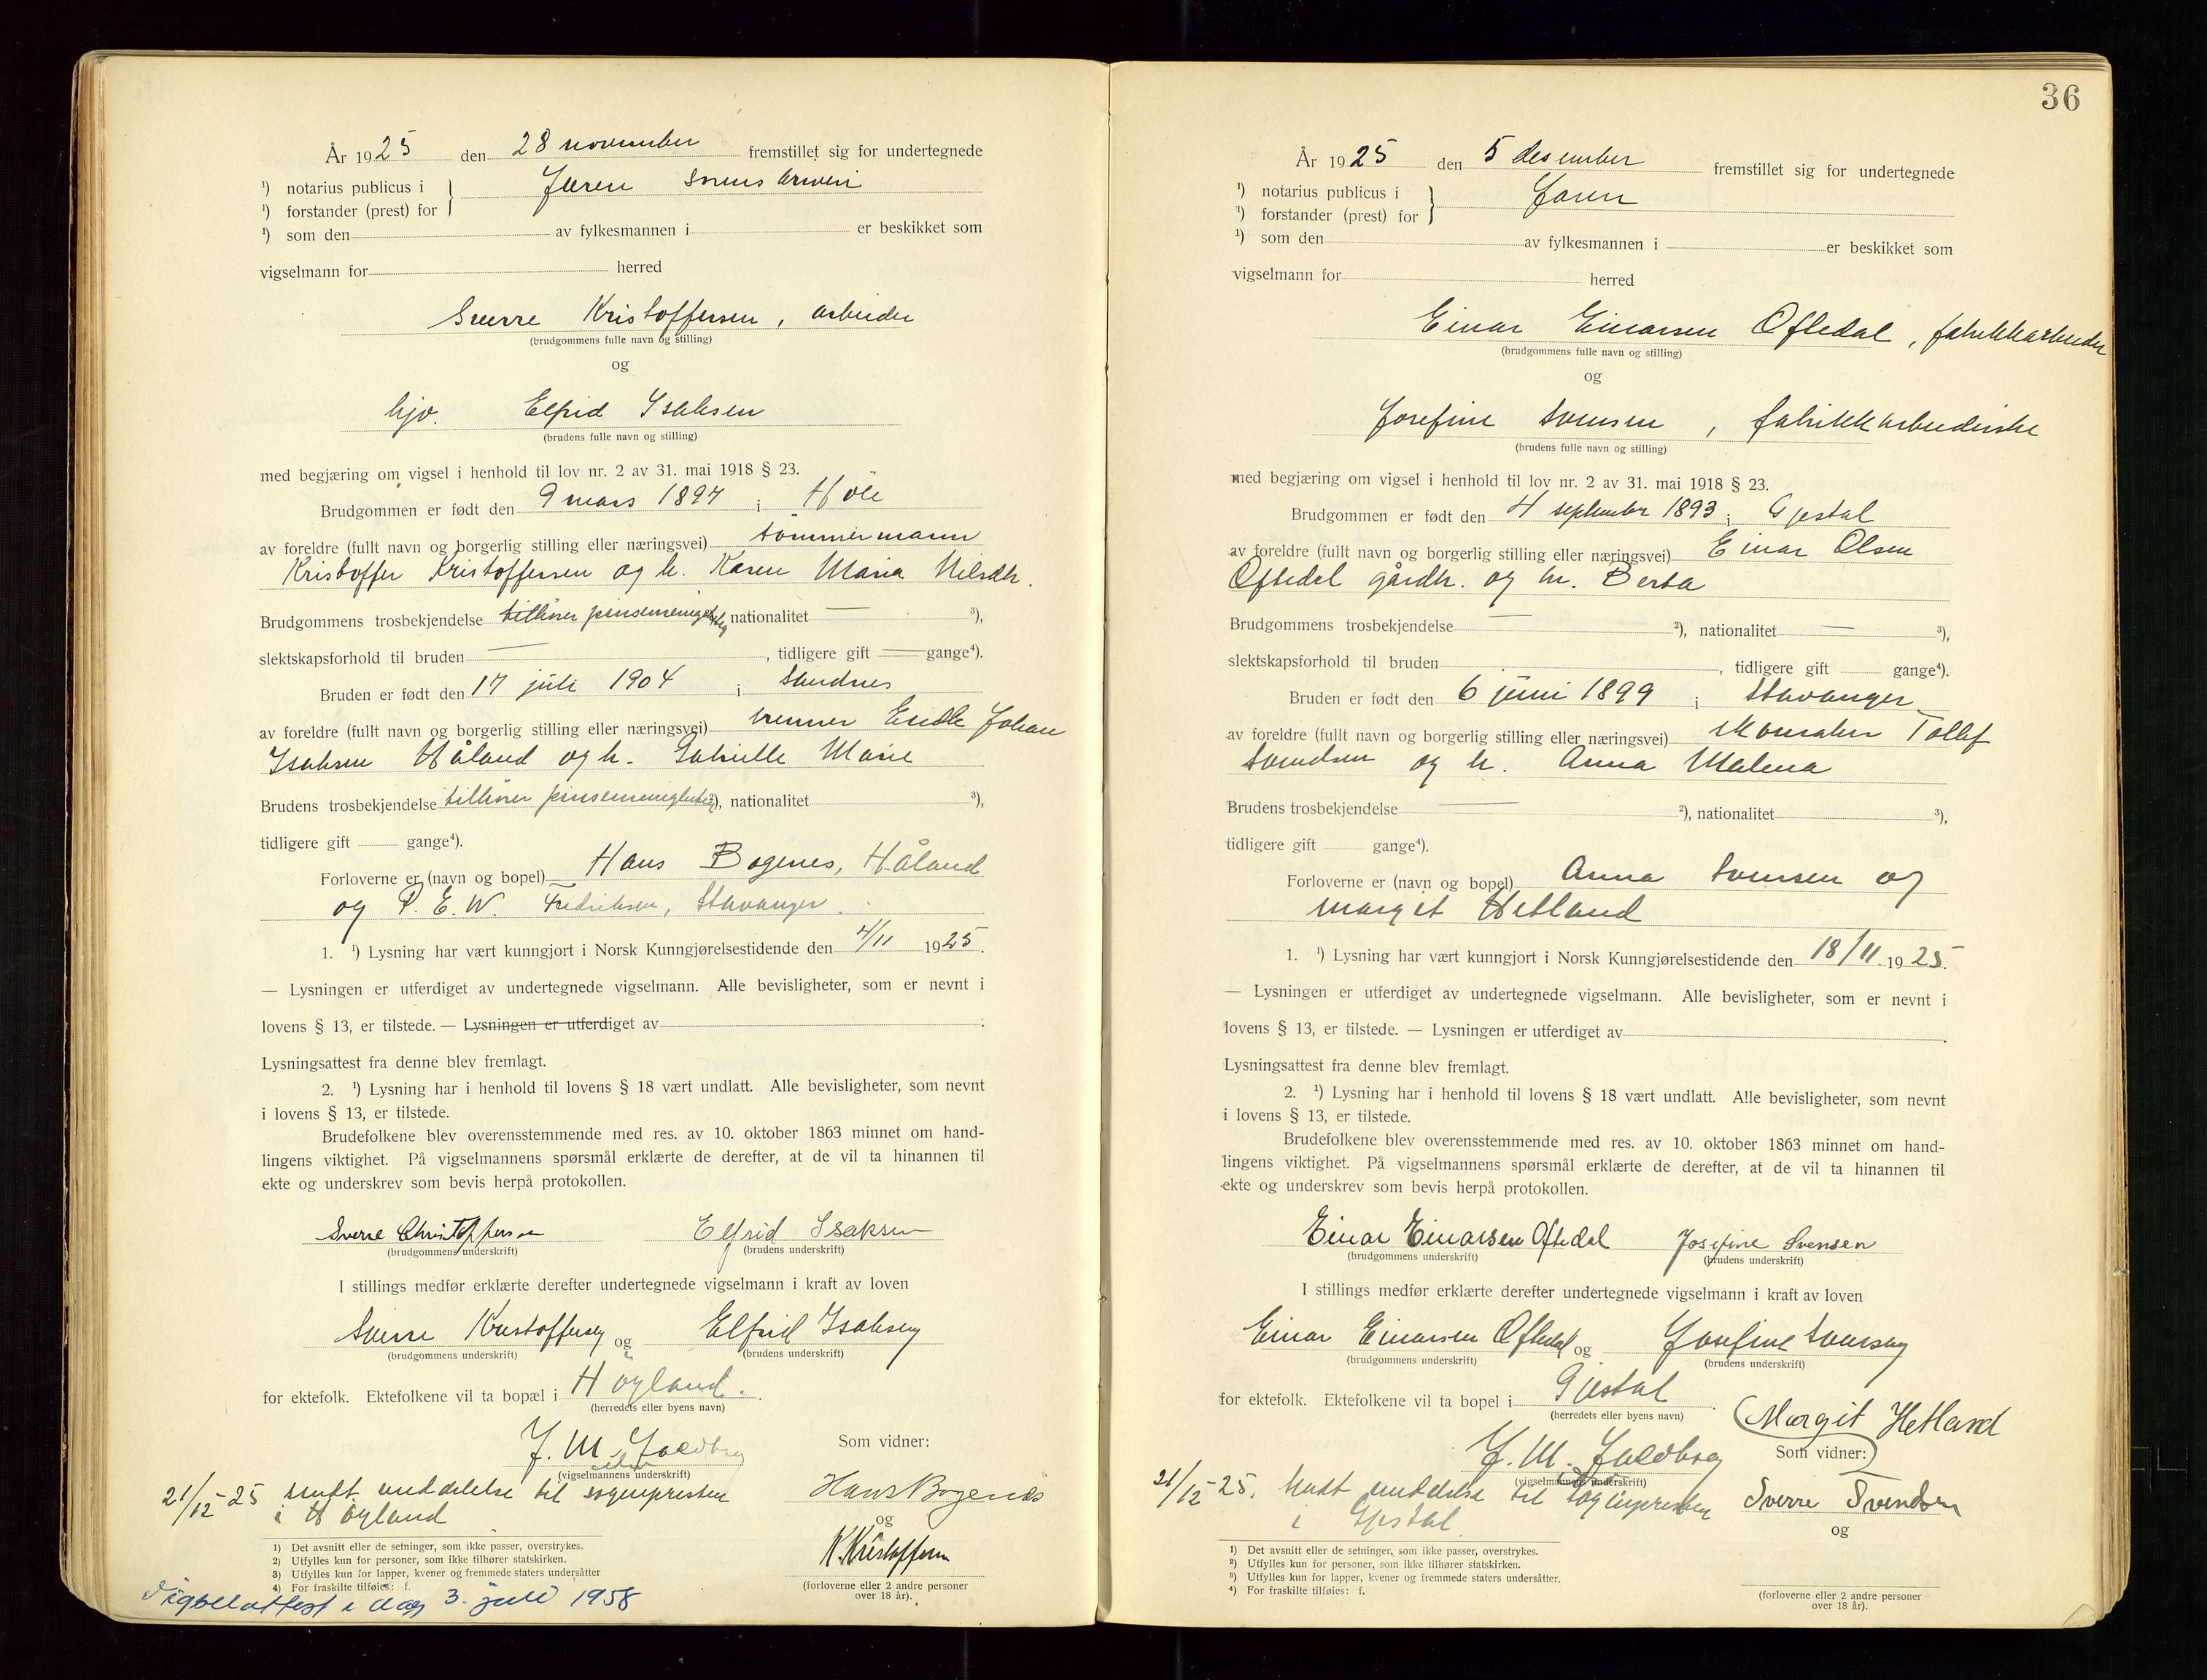 År 1925 den 28 november fremstillet sig for undertegnede
¹) notarius publicus i } Jæren sorenskriveri
¹) forstander (prest) for
¹) som den av fylkesmannen i er beskikket som
vigselmann for herred
Sverre Kristoffersen, arbeider
(brudgommens fulle navn og stilling)
og
hjv. Elfrid Isaksen
(brudens fulle navn og stilling)
med begjæring om vigsel i henhold til lov nr. 2 av 31. mai 1918 § 23.
Brudgommen er født den 9 mars 1897 i Høle
av foreldre (fullt navn og borgerlig stilling eller næringsvei) tømmermann
Kristoffer Kristoffersen og h. Karen Maria Nilsdtr.
Brudgommens trosbekjendelse tilhører pinsemenigheten, nationalitet — ³),
slektskapsforhold til bruden —, tidligere gift — gange⁴).
Bruden er født den 17 juli 1904 i Sandnes
av foreldre (fullt navn og borgerlig stilling eller næringsvei) brenner Endle Johan
Isaksen Håland og h. Gabrielle Marie
Brudens trosbekjendelse tilhører pinsemenigheten ²), nationalitet ³),
tidligere gift gange⁴).
Forloverne er (navn og bopel) Hans Bogenes, Håland
og P. E. W. Fredriksen, Stavanger.
1. ¹) Lysning har vært kunngjort i Norsk Kunngjørelsestidende den 4/11 1925.
— Lysningen er utferdiget av undertegnede vigselmann. Alle bevisligheter, som er nevnt i
lovens § 13, er tilstede. — Lysningen er utferdiget av
Lysningsattest fra denne blev fremlagt.
2. ¹) Lysning har i henhold til lovens § 18 vært undlatt. Alle bevisligheter, som nevnt
i lovens § 13, er tilstede.
Brudefolkene blev overensstemmende med res. av 10. oktober 1863 minnet om hand-
lingens viktighet. På vigselmannens spørsmål erklærte de derefter, at de vil ta hinannen til
ekte og underskrev som bevis herpå protokollen.
Sverre Christoffersen Elfrid Isaksen
(brudgommens underskrift) (brudens underskrift)
I stillings medfør erklærte derefter undertegnede vigselmann i kraft av loven
Sverre Kristoffersen og Elfrid Isaksen
(brudgommens underskrift) (brudens underskrift)
for ektefolk. Ektefolkene vil ta bopæl i Høyland.
(herredets eller byens navn)
J. M. Jaedberg
(vigselmannens underskrift)
Som vidner:
21/12-25 sendt meddelelse til sognepresten
i Høyland
Hans Bogenes
og
K. Kristoffersen
(forloverne eller 2 andre personer
over 18 år).
1) Det avsnitt eller de setninger, som ikke passer, overstrykes.
2) Utfylles kun for personer, som ikke tilhører statskirken.
3) Utfylles kun for lapper, kvener og fremmede staters undersåtter
4) For fraskilte tilføies: f.
Vigselattest i dag 3. juli 1958
36
År 1925 den 5 desember fremstillet sig for undertegnede
¹) notarius publicus i } Jæren
¹) forstander (prest) for
¹) som den av fylkesmannen i er beskikket som
vigselmann for herred
Einar Einarsen Oftedal, fabrikkarbeider
(brudgommens fulle navn og stilling)
og
Josefine Svensen, fabrikkarbeiderske
(brudens fulle navn og stilling)
med begjæring om vigsel i henhold til lov nr. 2 av 31. mai 1918 § 23.
Brudgommen er født den 4 september 1893 i Gjestal
av foreldre (fullt navn og borgerlig stilling eller næringsvei) Einar Olsen
Oftedal gårdbr. og h. Berta
Brudgommens trosbekjendelse — ²), nationalitet — ³),
slektskapsforhold til bruden, tidligere gift gange⁴).
Bruden er født den 6 juni 1899 i Stavanger
av foreldre (fullt navn og borgerlig stilling eller næringsvei) skomaker Tollef
Svendsen og h. Anna Malena
Brudens trosbekjendelse — ²), nationalitet ³),
tidligere gift gange⁴).
Forloverne er (navn og bopel) Anna Svensen og
Margit Hetland
1. ¹) Lysning har vært kunngjort i Norsk Kunngjørelsestidende den 18/11. 1925.
— Lysningen er utferdiget av undertegnede vigselmann. Alle bevisligheter, som er nevnt i
lovens § 13, er tilstede. — Lysningen er utferdiget av
Lysningsattest fra denne blev fremlagt.
2. ¹) Lysning har i henhold til lovens § 18 vært undlatt. Alle bevisligheter, som nevnt
i lovens § 13, er tilstede.
Brudefolkene blev overensstemmende med res. av 10. oktober 1863 minnet om hand-
lingens viktighet. På vigselmannens spørsmål erklærte de derefter, at de vil ta hinannen til
ekte og underskrev som bevis herpå protokollen.
Einar Einarsen Oftedal Josefine Svensen
(brudgommens underskrift) (brudens underskrift)
I stillings medfør erklærte derefter undertegnede vigselmann i kraft av loven
Einar Einarsen Oftedal og Josefine Svensen
(brudgommens underskrift) (brudens underskrift)
for ektefolk. Ektefolkene vil ta bopel i Gjestal.
(herredets eller byens navn)
Margit Hetland
J. M. Jaedberg
(vigselmannens underskrift)
Som vidner:
21/12-25. Sendt meddelelse til sognepresten
i Gjestal.
Sverre Svendsen
og
(forloverne eller 2 andre personer
over 18 år).
¹) Det avsnitt eller de setninger, som ikke passer, overstrykes.
²) Utfylles kun for personer, som ikke tilhører statskirken.
³) Utfylles kun for lapper, kvener og fremmede staters undersåtter.
⁴) For fraskilte tilføies: f.